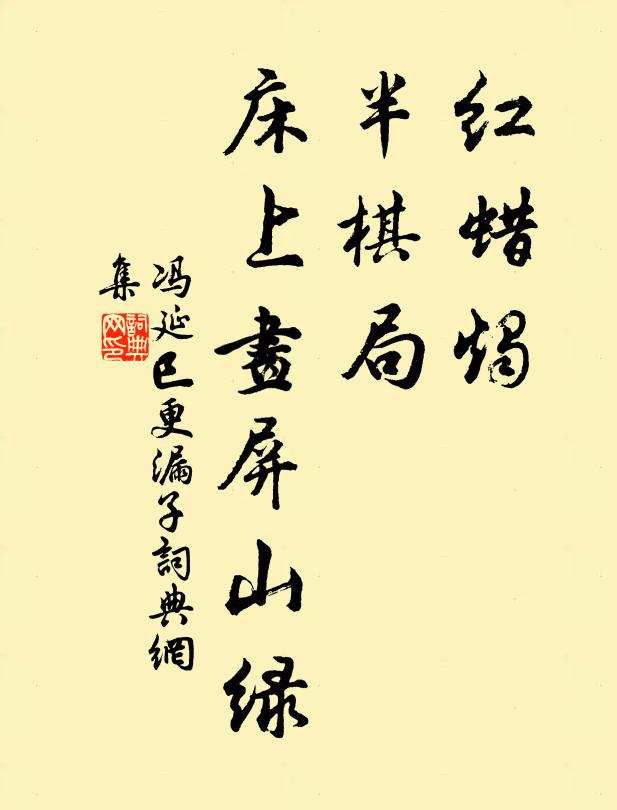 红蜡烛
半棋局
床上畫屏山绿
冯延巳更漏子詞典網
集
詞典网印